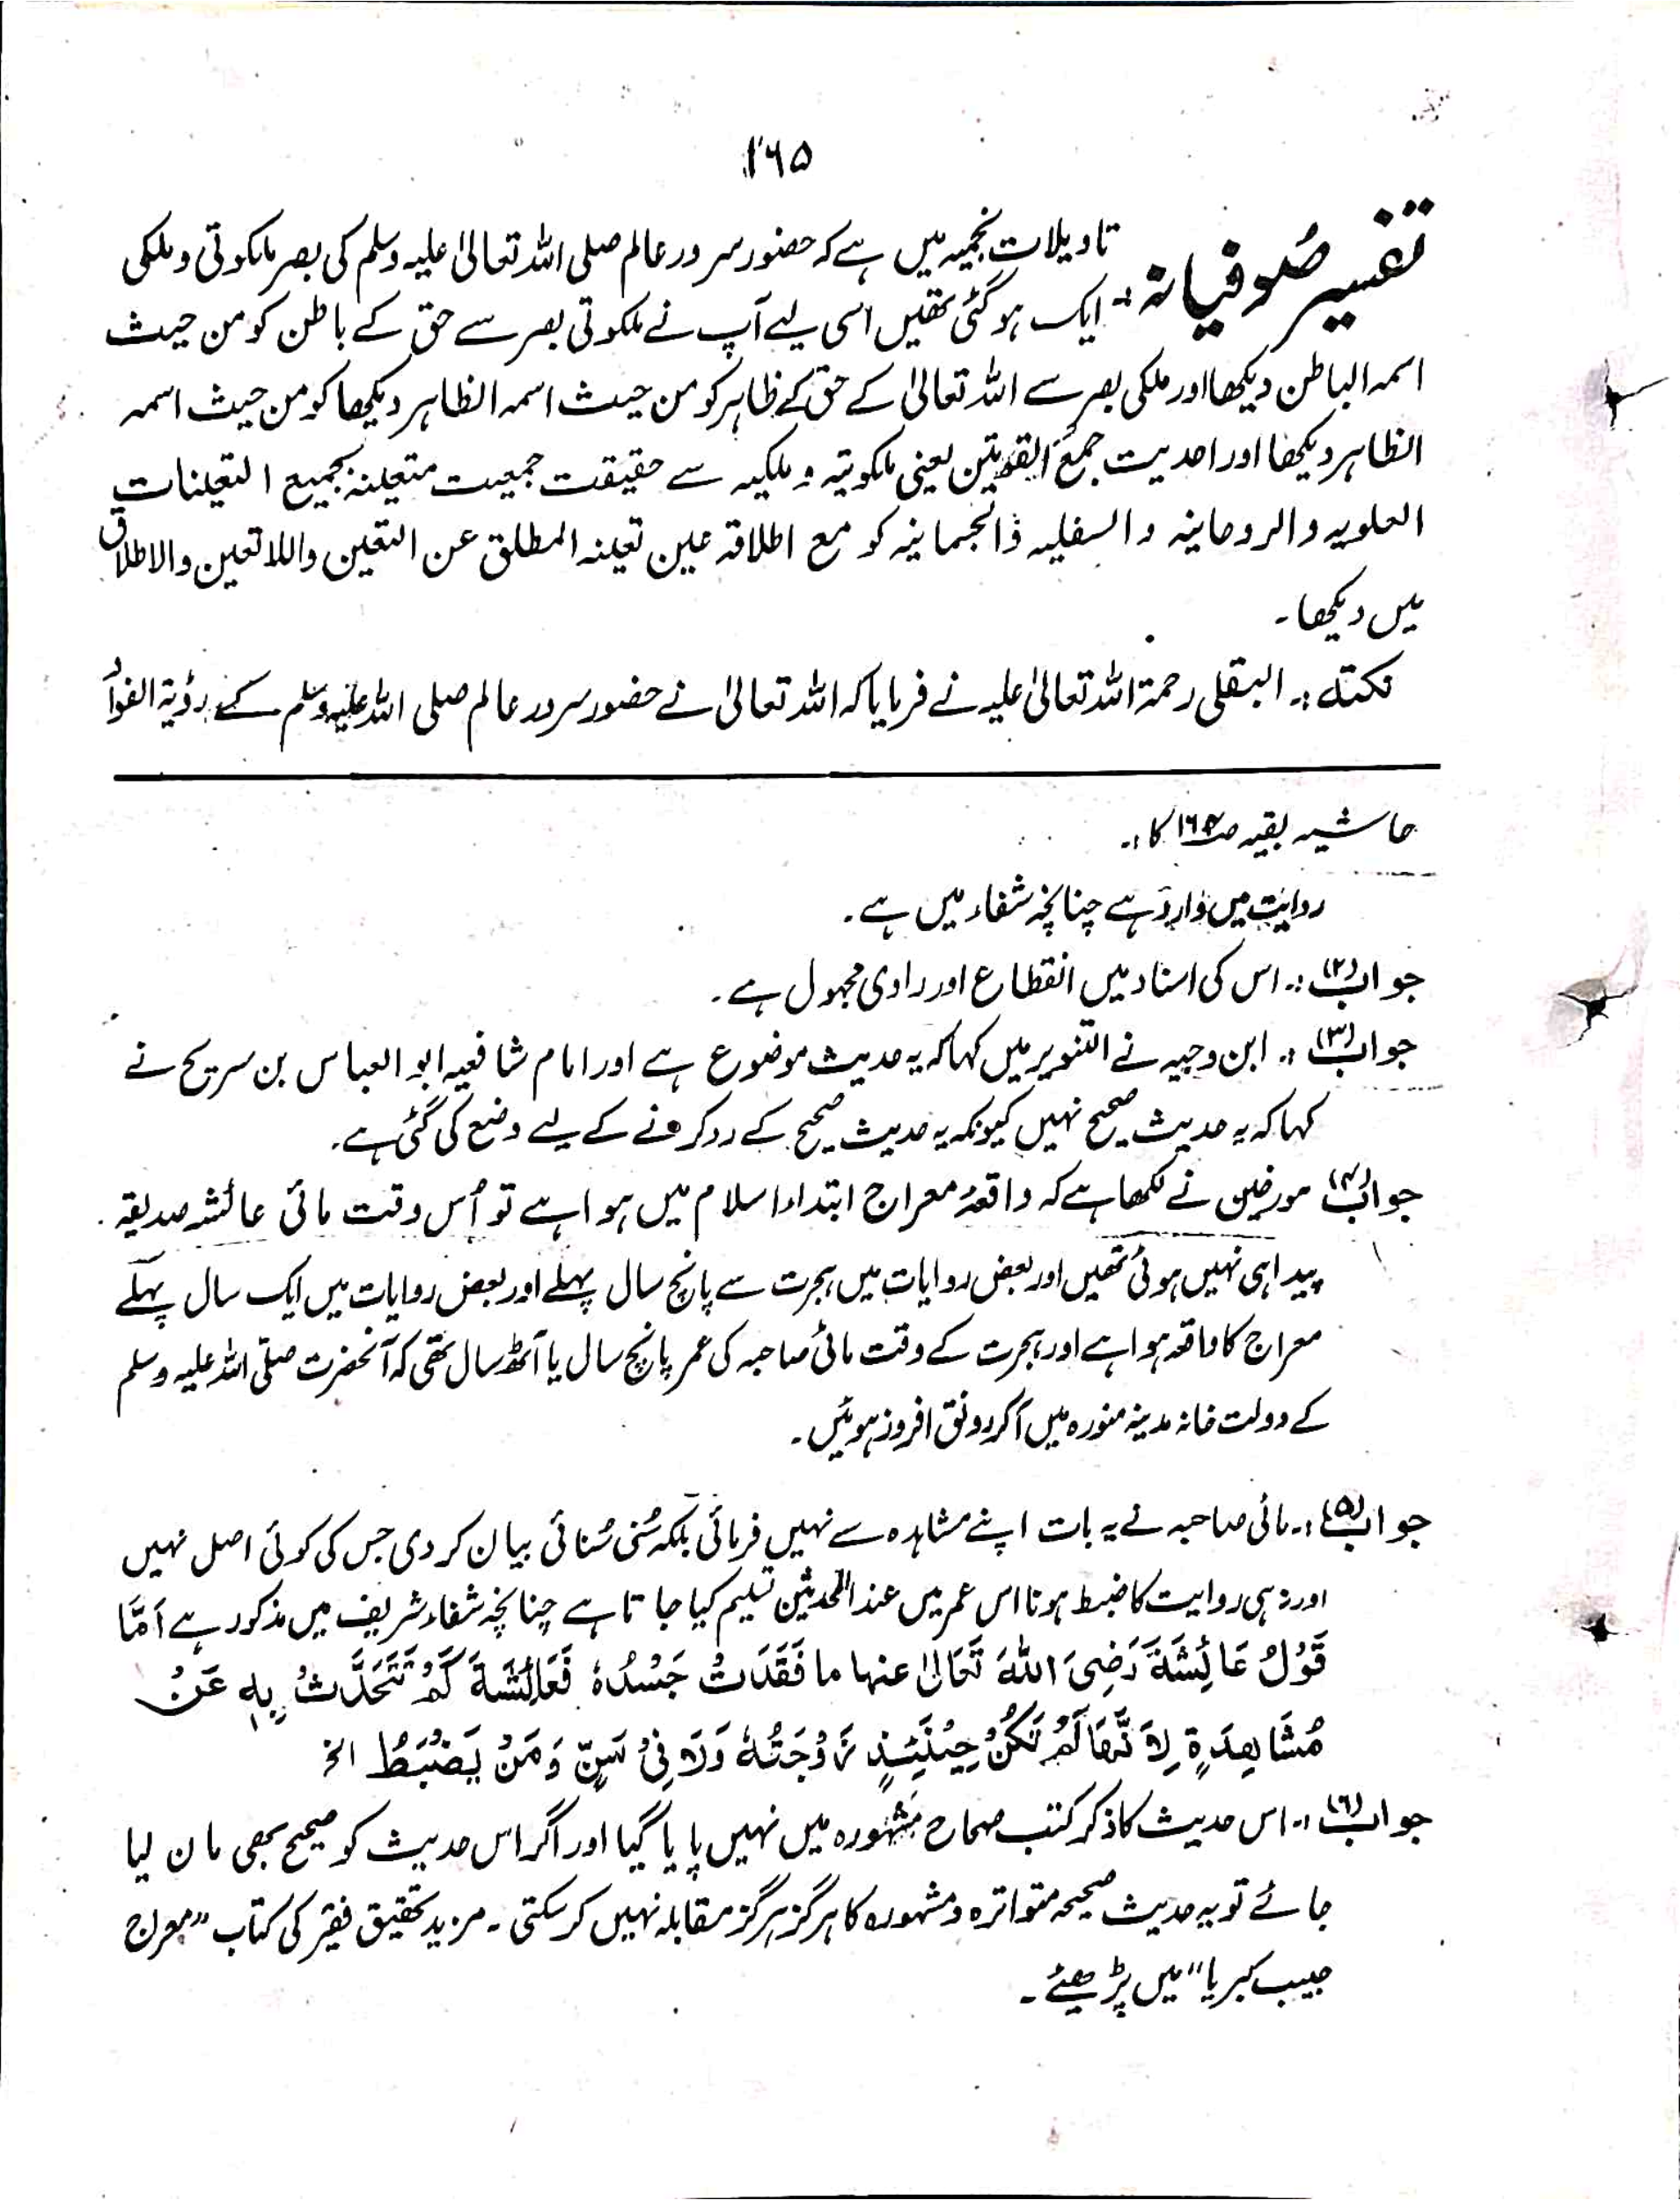 ۱۶۵
تفسیر صُوفیانہ :۔ تاویلات نجمیہ میں ہے کہ حضور سرور عالم صلی اللہ تعالیٰ علیہ وسلم کی بصر ملکوتی و ملکی
ایک ہو گئی تھیں اسی لیے آپ نے ملکوتی بصر سے حق کے باطن کو من حیث
اسمہ الباطن دیکھا اور ملکی بصر سے اللہ تعالیٰ کے حق کے ظاہر کو من حیث اسمہ الظاہر دیکھا کو من حیث اسمہ
الظاہر دیکھا اور احدیت جمع القوتین یعنی ملکوتیہ و ملکیہ سے حقیقت جمعیت متعینہ بجمیع التعینات
العلویہ والروحانیہ والسفلیہ والجسمانیہ کو مع اطلاقہ عین تعینہ المطلق عن التعین واللاتعین والاطلاق
میں دیکھا۔
نکتہ :۔ البقلی رحمۃ اللہ تعالیٰ علیہ نے فرمایا کہ اللہ تعالیٰ نے حضور سرور عالم صلی اللہ علیہ وسلم کے رؤیۃ الفواُ
حاشیہ بقیہ صـ ۱۶۴ کا :۔
روایت میں وارد ہے چنانچہ شفاء میں ہے۔
جواب (۲) :۔ اس کی اسناد میں انقطاع اور راوی مجہول ہے۔
جواب (۳) :۔ ابن وحیہ نے التنویر میں کہا کہ یہ حدیث موضوع ہے اور امام شافعیہ ابو العباس بن سریح نے
کہا کہ یہ حدیث صحیح نہیں کیونکہ یہ حدیث صحیح کے رد کرنے کے لیے وضع کی گئی ہے۔
جواب (۴) مورخین نے لکھا ہے کہ واقعۂ معراج ابتداء اسلام میں ہوا ہے تو اُس وقت مائی عائشہ صدیقہ
پیدا ہی نہیں ہوئی تھیں اور بعض روایات میں ہجرت سے پانچ سال پہلے اور بعض روایات میں ایک سال پہلے
معراج کا واقعہ ہوا ہے اور ہجرت کے وقت مائی صاحبہ کی عمر پانچ سال یا آٹھ سال تھی کہ آنحضرت صلّی اللہ علیہ وسلم
کے دولت خانہ مدینہ منورہ میں آکر رونق افروز ہوئیں۔
جواب (۵) :۔ مائی صاحبہ نے یہ بات اپنے مشاہدہ سے نہیں فرمائی بلکہ سُنی سُنائی بیان کر دی جس کی کوئی اصل نہیں
اور نہ ہی روایت کا ضبط ہونا اس عمر میں عند المحدثین تسلیم کیا جاتا ہے چنانچہ شفاء شریف میں مذکور ہے اَمَّا
قَوْلُ عَائِشَةَ رَضِیَ اللہَ تَعَالیٰ عنہا ما فَقَدَتْ جَسْدُہٗ فَعَائِشَةَ لَمْ تَتَحَدَّثْ بِهٖ عَنْ
مُشَاهِدَةٍ لِاَنَّهَا لَمْ تَكُنْ حِيْنَئِذٍ زَوْجَتُهٗ وَلَا فِیْ سَنِّ وَمَنْ یَضْبَطُ الخ
جواب (۶) :۔ اس حدیث کا ذکر کتب صحاح مشہورہ میں نہیں پایا گیا اور اگر اس حدیث کو صحیح بھی مان لیا
جائے تو یہ حدیث صحیحہ متواترہ و مشہورہ کا ہرگز ہرگز مقابلہ نہیں کر سکتی۔ مزید تحقیق فقیر کی کتاب ”معراج
حبیب کبریا“ میں پڑھیئے۔